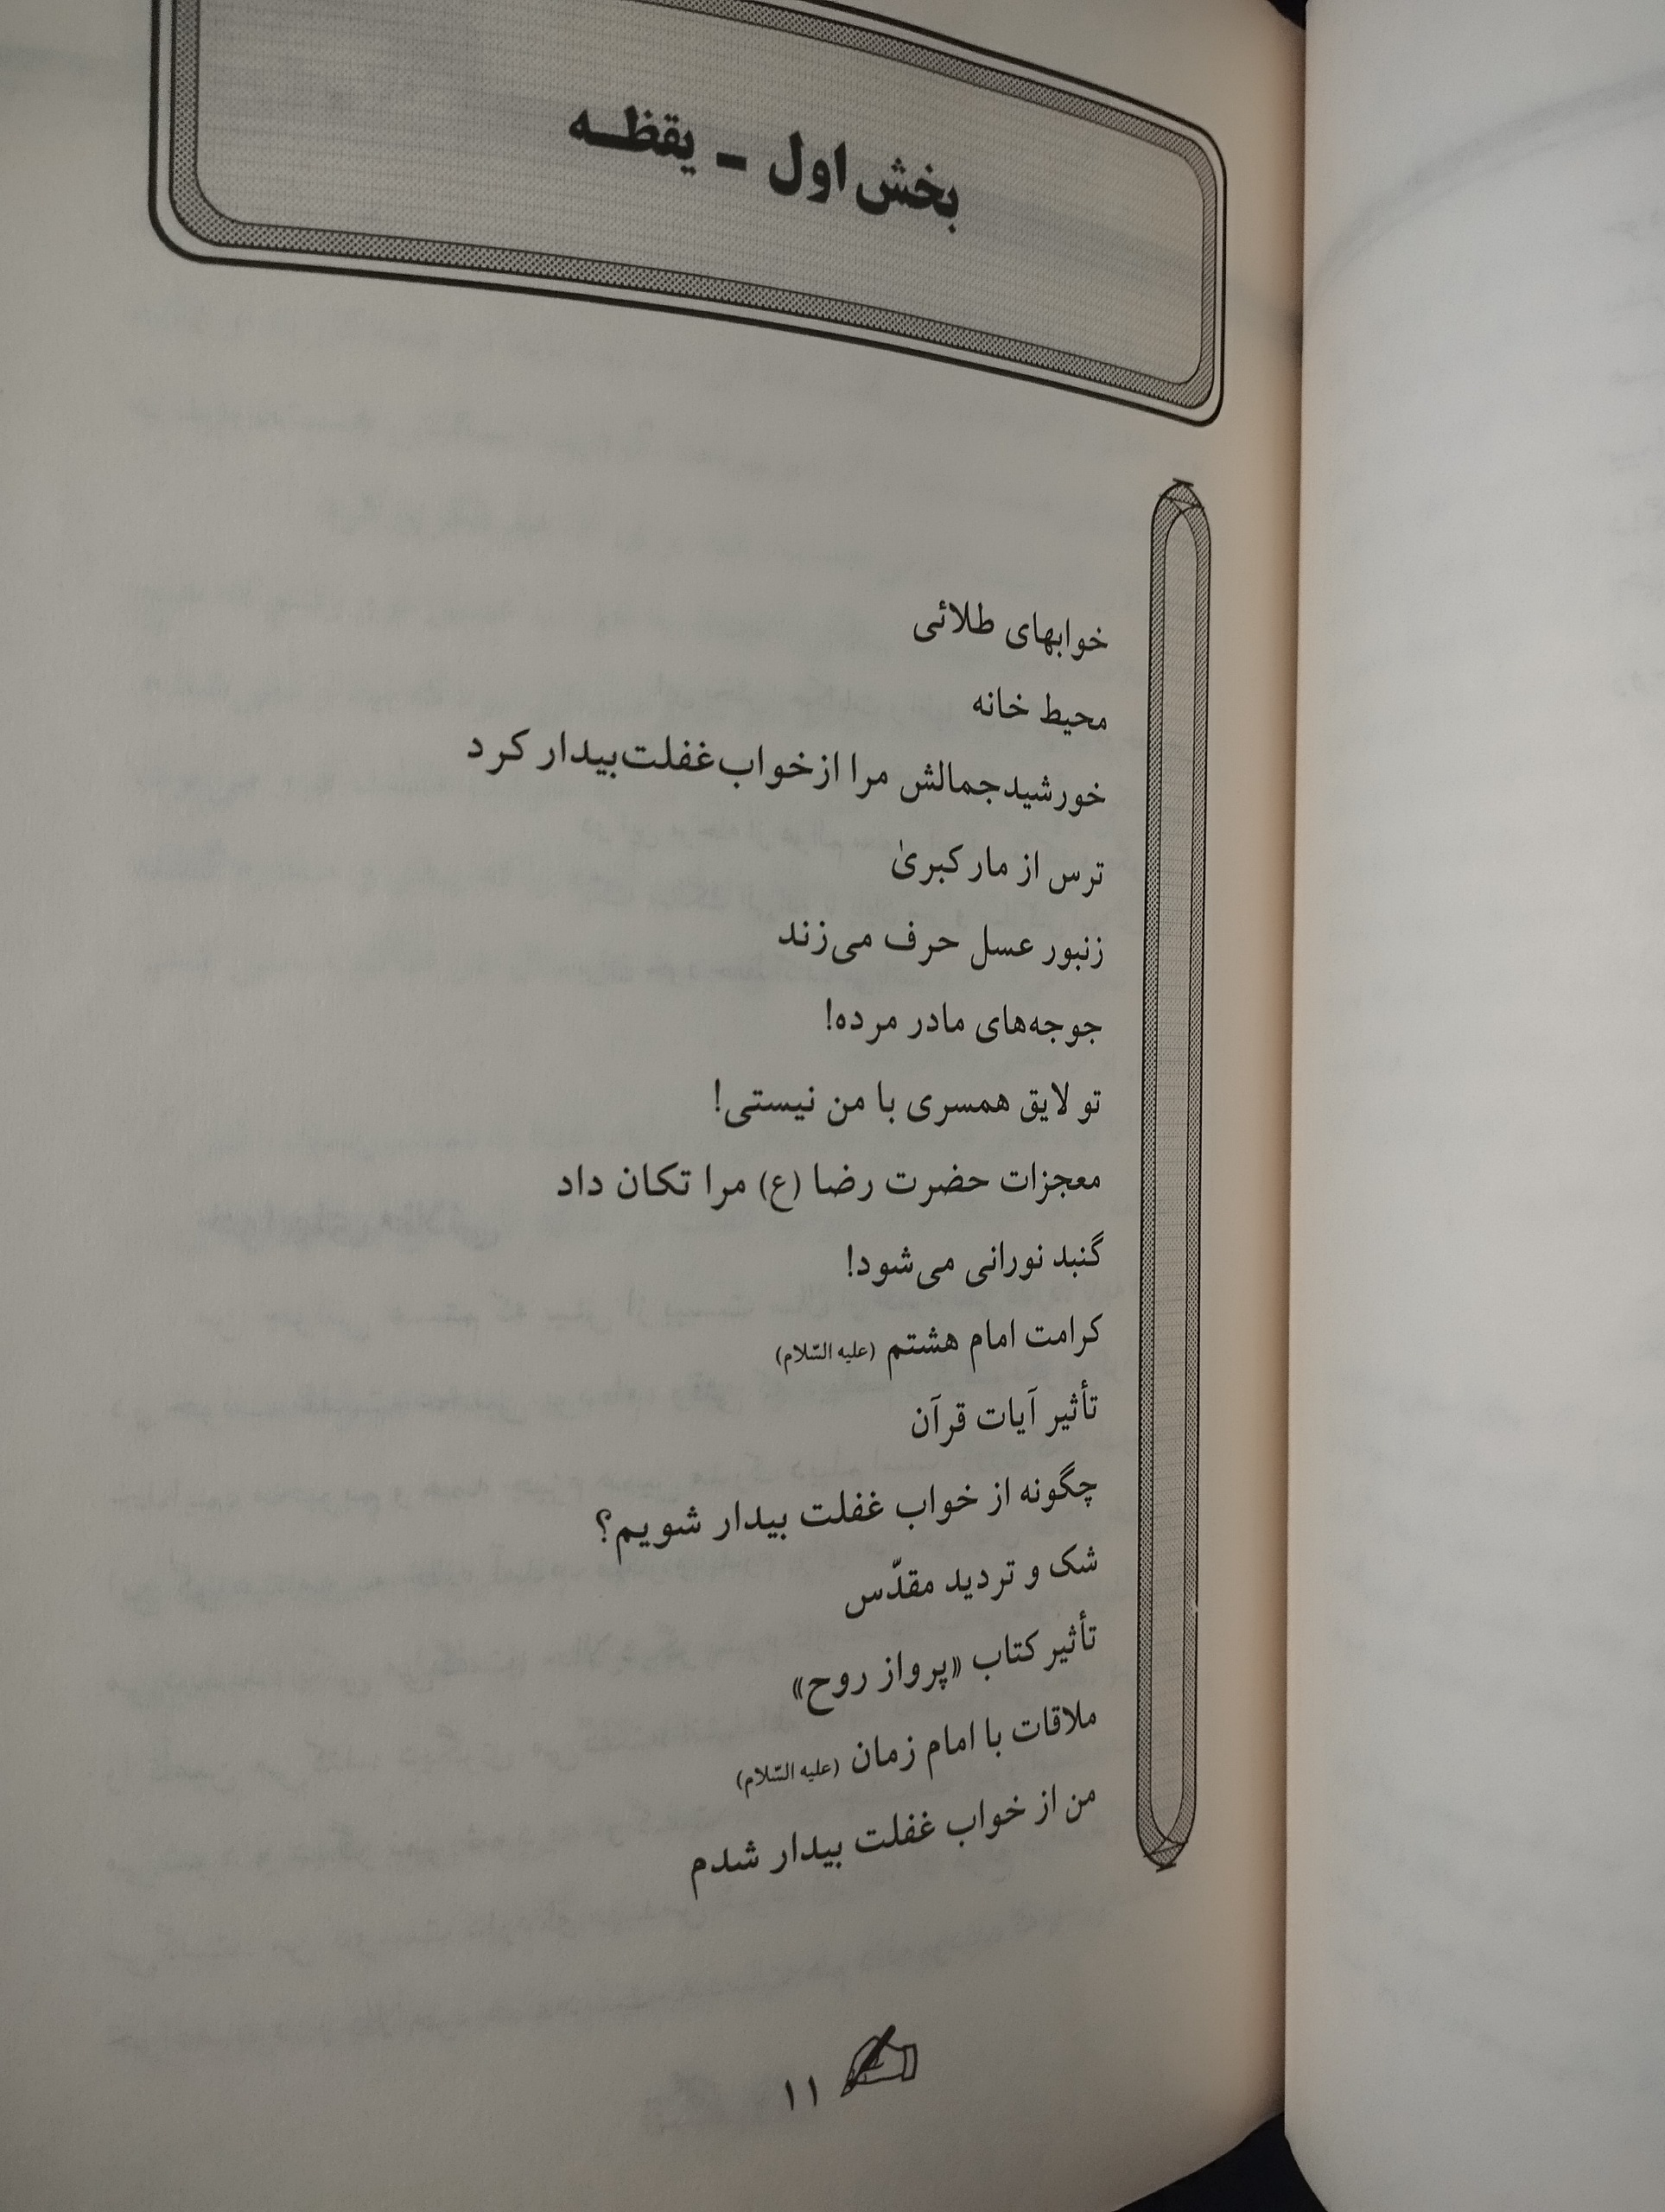 بخش اول - یقظه
خوابهای طلائی
محیط خانه
خورشید جمالش مرا از خواب غفلت بیدار کرد
ترس از مار کبریٰ
زنبور عسل حرف می‌زند
جوجه‌های مادر مرده!
تو لایق همسری با من نیستی!
معجزات حضرت رضا (ع) مرا تکان داد
گنبد نورانی می‌شود!
کرامت امام هشتم (علیه السّلام)
تأثیر آیات قرآن
چگونه از خواب غفلت بیدار شویم؟
شک و تردید مقدّس
تأثیر کتاب «پرواز روح»
ملاقات با امام زمان (علیه السّلام)
من از خواب غفلت بیدار شدم
۱۱